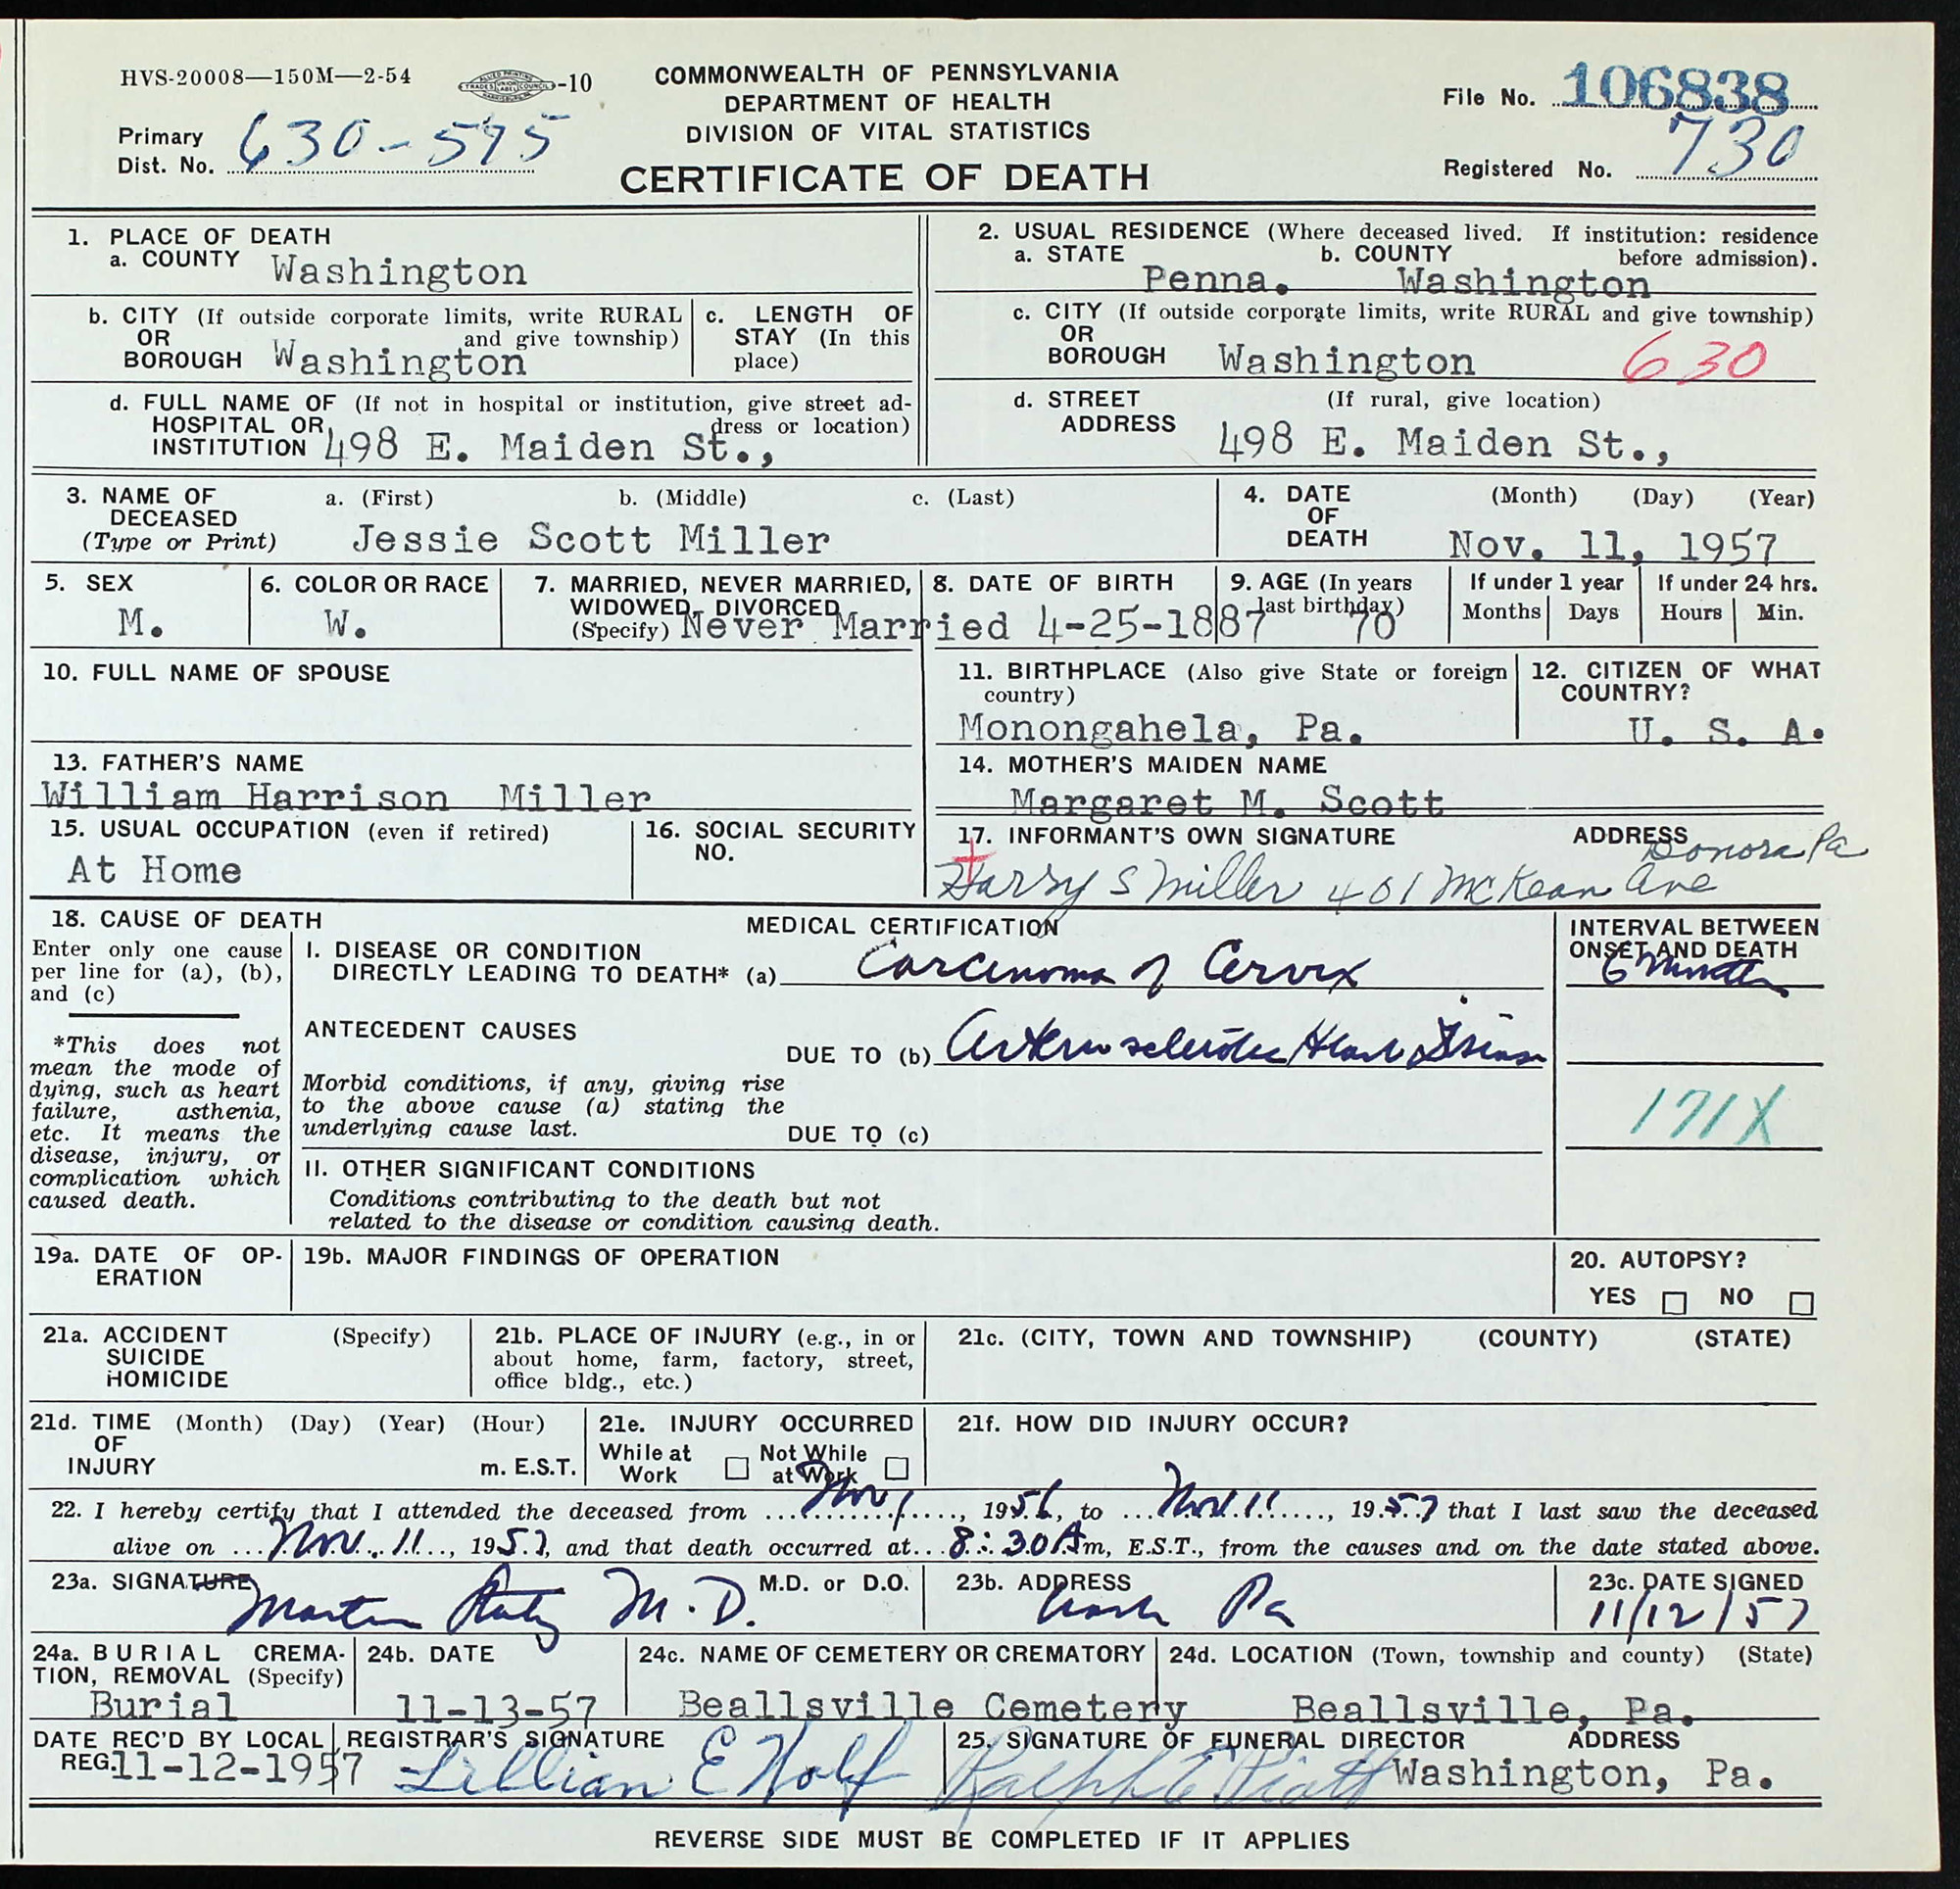 HVS-20008—150M—2-54
ALLIED PRINTING TRADES UNION LABEL COUNCIL HARRISBURG, PA. -10
COMMONWEALTH OF PENNSYLVANIA
DEPARTMENT OF HEALTH
DIVISION OF VITAL STATISTICS
CERTIFICATE OF DEATH
File No. 106838
Primary
Dist. No. 630-595
Registered No. 730
1. PLACE OF DEATH
a. COUNTY Washington
b. CITY (If outside corporate limits, write RURAL
OR and give township)
BOROUGH Washington
c. LENGTH OF
STAY (In this
place)
d. FULL NAME OF (If not in hospital or institution, give street ad-
HOSPITAL OR dress or location)
INSTITUTION 498 E. Maiden St.,
2. USUAL RESIDENCE (Where deceased lived. If institution: residence
before admission).
a. STATE Penna. b. COUNTY Washington
c. CITY (If outside corporate limits, write RURAL and give township)
OR
BOROUGH Washington 630
d. STREET (If rural, give location)
ADDRESS 498 E. Maiden St.,
3. NAME OF a. (First) b. (Middle) c. (Last)
DECEASED
(Type or Print) Jessie Scott Miller
4. DATE (Month) (Day) (Year)
OF
DEATH Nov. 11, 1957
5. SEX
M.
6. COLOR OR RACE
W.
7. MARRIED, NEVER MARRIED,
WIDOWED, DIVORCED
(Specify) Never Married
8. DATE OF BIRTH
4-25-1887
9. AGE (In years
last birthday)
70
If under 1 year
Months Days
If under 24 hrs.
Hours Min.
10. FULL NAME OF SPOUSE
11. BIRTHPLACE (Also give State or foreign
country)
Monongahela, Pa.
12. CITIZEN OF WHAT
COUNTRY?
U. S. A.
13. FATHER'S NAME
William Harrison Miller
14. MOTHER'S MAIDEN NAME
Margaret M. Scott
15. USUAL OCCUPATION (even if retired)
At Home
16. SOCIAL SECURITY
NO.
17. INFORMANT'S OWN SIGNATURE ADDRESS
Donora Pa
Harry S Miller 401 McKean Ave
18. CAUSE OF DEATH
Enter only one cause
per line for (a), (b),
and (c)
*This does not
mean the mode of
dying, such as heart
failure, asthenia,
etc. It means the
disease, injury, or
complication which
caused death.
MEDICAL CERTIFICATION
I. DISEASE OR CONDITION
DIRECTLY LEADING TO DEATH* (a) Carcinoma of Cervix
ANTECEDENT CAUSES
DUE TO (b) Arteriosclerotic Heart Disease
Morbid conditions, if any, giving rise
to the above cause (a) stating the
underlying cause last.
DUE TO (c)
II. OTHER SIGNIFICANT CONDITIONS
Conditions contributing to the death but not
related to the disease or condition causing death.
INTERVAL BETWEEN
ONSET AND DEATH
6 months
171X
19a. DATE OF OP-
ERATION
19b. MAJOR FINDINGS OF OPERATION
20. AUTOPSY?
YES NO
21a. ACCIDENT (Specify)
SUICIDE
HOMICIDE
21b. PLACE OF INJURY (e.g., in or
about home, farm, factory, street,
office bldg., etc.)
21c. (CITY, TOWN AND TOWNSHIP) (COUNTY) (STATE)
21d. TIME (Month) (Day) (Year) (Hour)
OF
INJURY m. E.S.T.
21e. INJURY OCCURRED
While at Not While
Work at Work
21f. HOW DID INJURY OCCUR?
22. I hereby certify that I attended the deceased from Nov 1, 1956, to Nov. 11, 1957 that I last saw the deceased
alive on Nov. 11, 1957, and that death occurred at 8:30 A m, E.S.T., from the causes and on the date stated above.
23a. SIGNATURE M.D. or D.O.
Martin M.D.
23b. ADDRESS
Wash Pa
23c. DATE SIGNED
11/12/57
24a. BURIAL CREMA-
TION, REMOVAL (Specify)
Burial
24b. DATE
11-13-57
24c. NAME OF CEMETERY OR CREMATORY
Beallsville Cemetery
24d. LOCATION (Town, township and county) (State)
Beallsville, Pa.
DATE REC'D BY LOCAL
REG. 11-12-1957
REGISTRAR'S SIGNATURE
Lillian E Wolf
25. SIGNATURE OF FUNERAL DIRECTOR ADDRESS
Ralph E Piatt Washington, Pa.
REVERSE SIDE MUST BE COMPLETED IF IT APPLIES